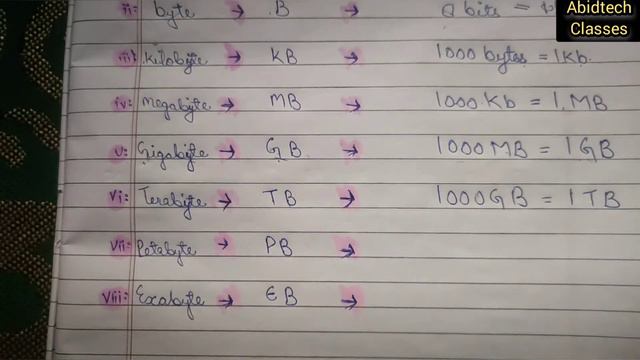 Abidtech
Classes
ii: byte → B → 8 bits =
iii: Kilobyte → KB → 1000 bytes = 1Kb.
iv: Megabyte → MB → 1000 Kb = 1 MB
v: Gigabyte → GB → 1000 MB = 1 GB
vi: Terabyte → TB → 1000GB = 1 TB
vii: Petabyte → PB →
viii: Exabyte → EB →